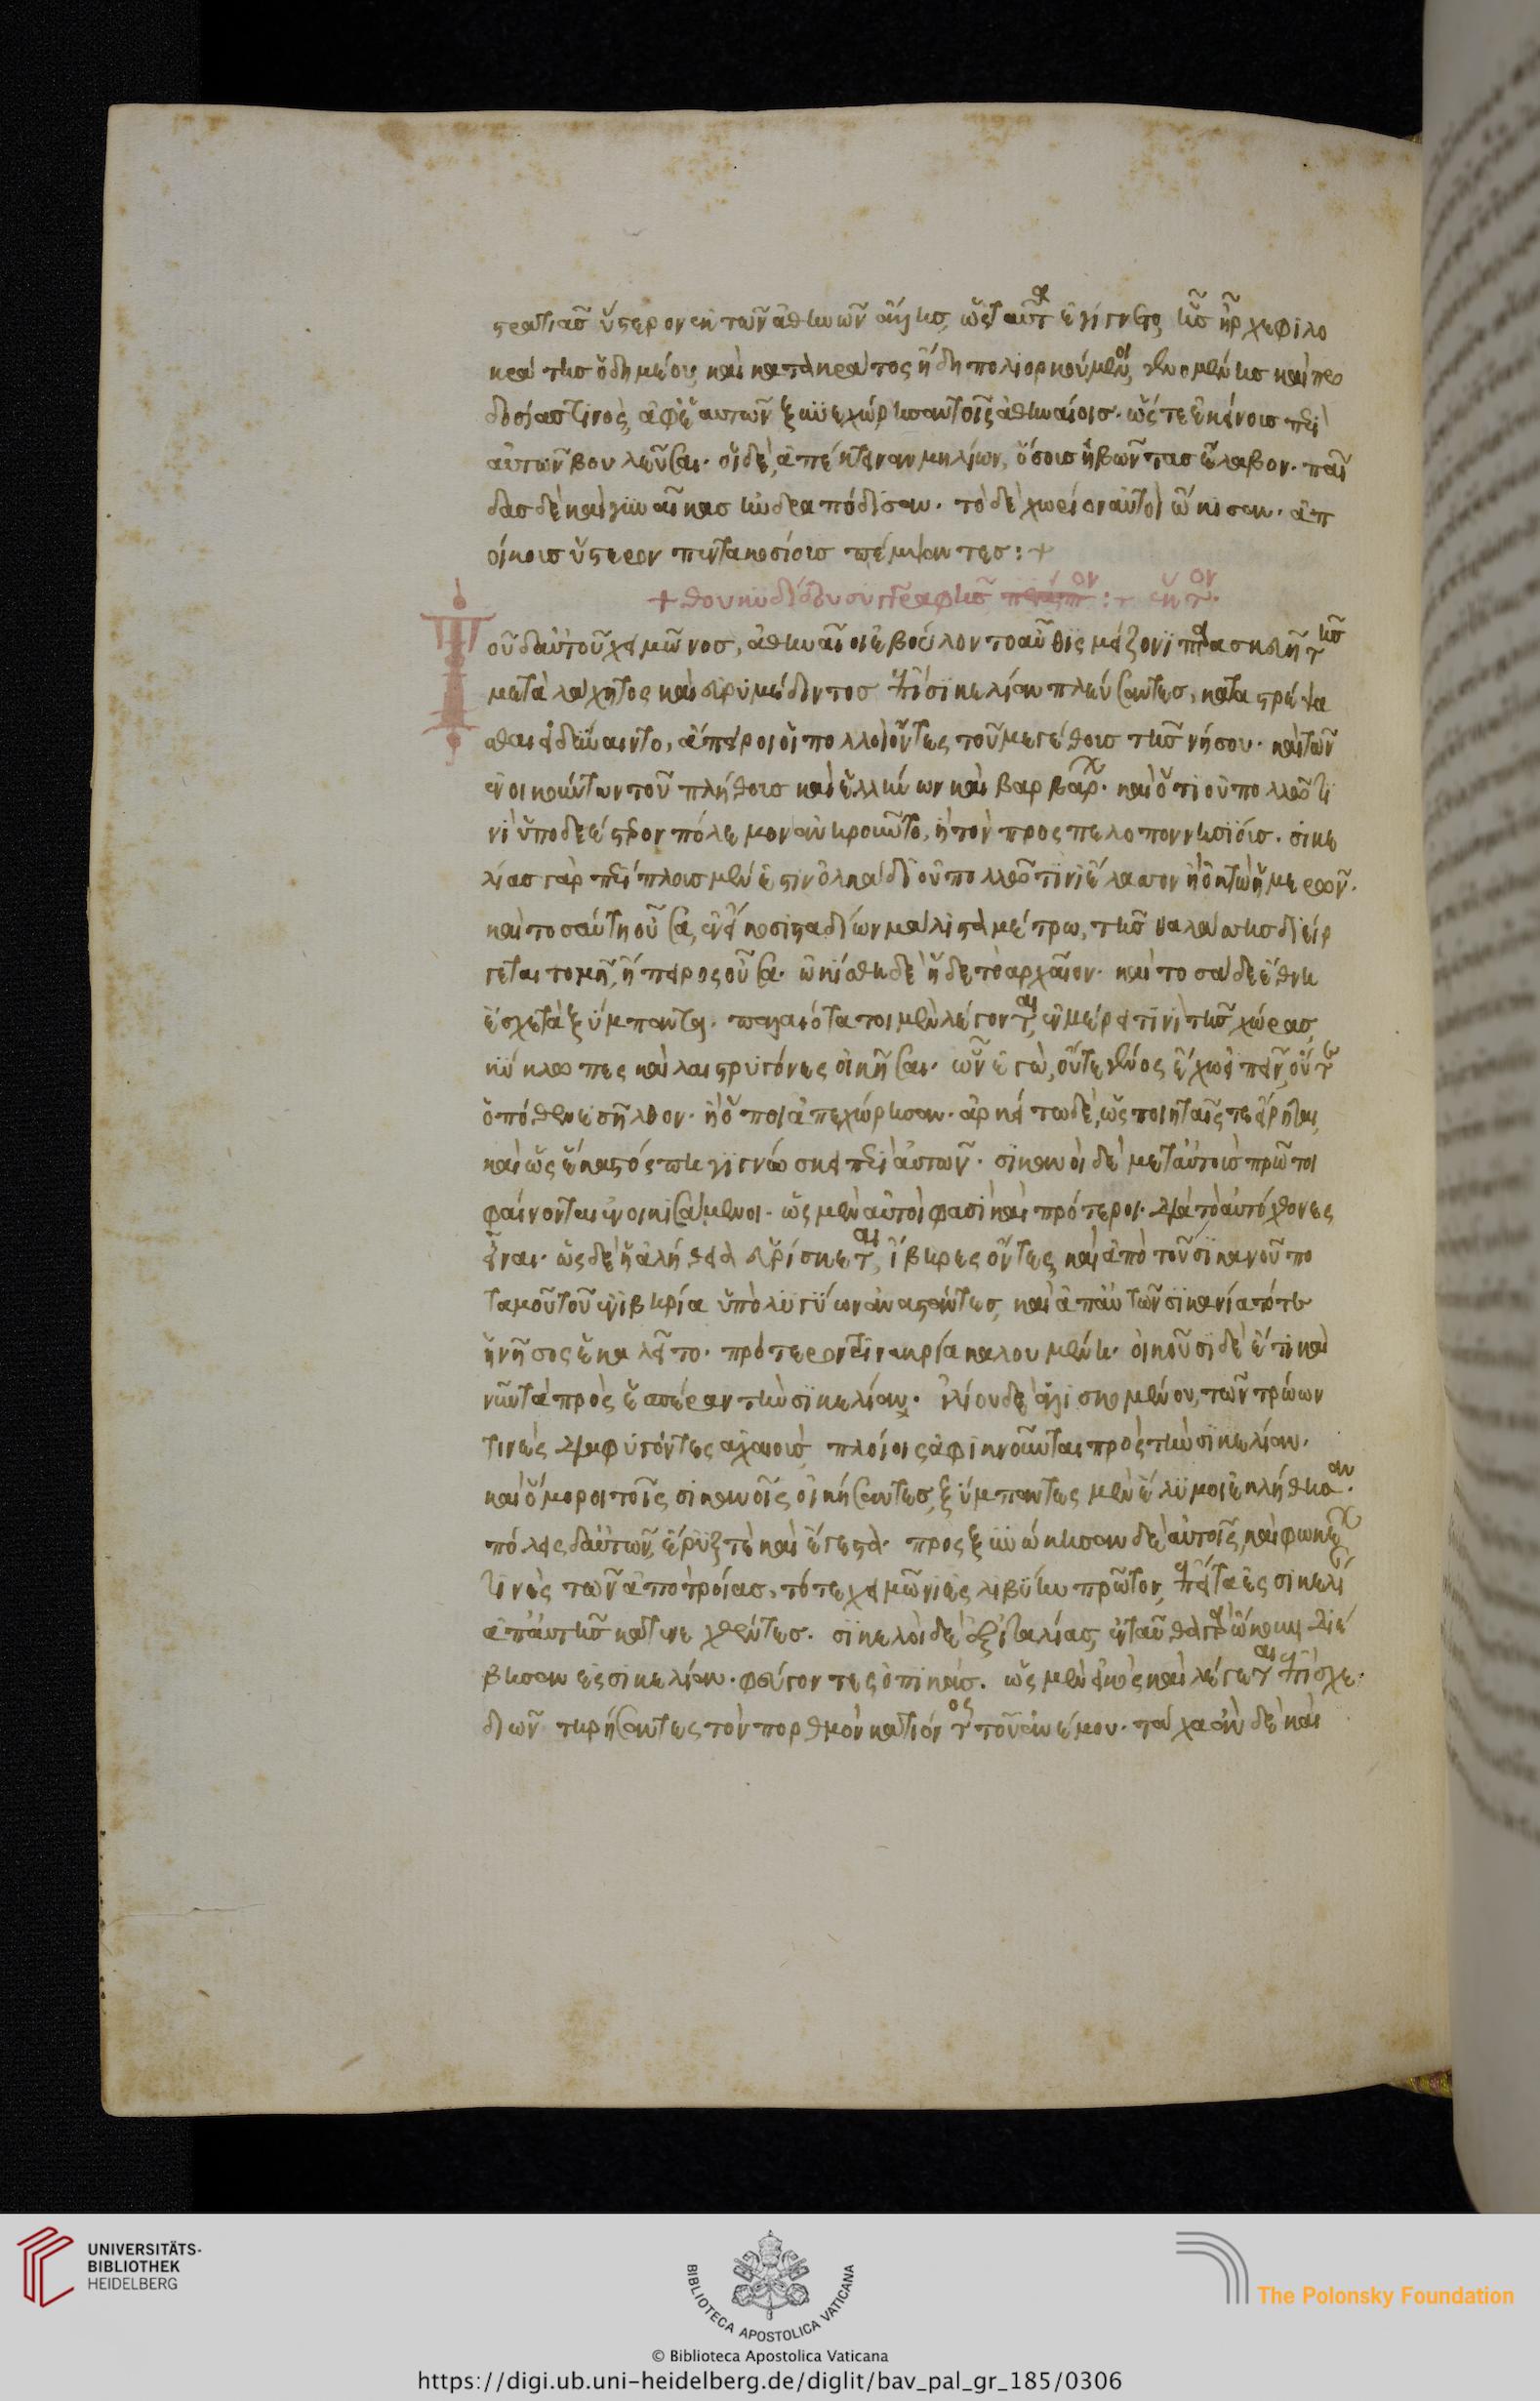 στρατιᾶς ὕστερον ἐκ τῶν ἀθηνῶν ἄλλης, ὡς ταῦτα ἐγίγνετο, ἧς ἦρχε φιλο
κράτης ὁ δημέου, καὶ κατὰ κράτος ἤδη πολιορκούμενοι, γενομένης καὶ προ
δοσίας τινὸς, ἀφ' ἑαυτῶν ξυνεχώρησαν τοῖς ἀθηναίοις. ὥστε ἐκείνους περὶ
αὐτῶν βουλεῦσαι. οἱ δὲ, ἀπέκτειναν μηλίων, ὅσους ἡβῶντας ἔλαβον. παῖ
δας δὲ καὶ γυναῖκας ἠνδραπόδισαν. τὸ δὲ χωρίον αὐτοὶ ᾤκισαν. ἀπ
οίκους ὕστερον πεντακοσίους πέμψαντες: +
+ θουκυδίδου συγγραφῆς πέμπτον :+ ἕκτον.
Τοῦ δ' αὐτοῦ χειμῶνος, ἀθηναῖοι ἐβούλοντο αὖθις μείζονι παρασκευῇ τῆς
μετὰ λάχητος καὶ εὐρυμέδοντος ἐπὶ σικελίαν πλεύσαντες, καταστρέψα
σθαι εἰ δύναιντο, ἄπειροι οἱ πολλοὶ ὄντες τοῦ μεγέθους τῆς νήσου. καὶ τῶν
ἐνοικούντων τοῦ πλήθους καὶ ἑλλήνων καὶ βαρβάρων. καὶ ὅτι οὐ πολλῷ τι
νὶ ὑποδεέστερον πόλεμον ἀνῃροῦντο, ἢ τὸν πρὸς πελοποννησίους. σικε
λίας γὰρ περίπλους μέν ἐστιν ὁλκάδι οὐ πολλῷ τινὶ ἔλασσον ἢ ὀκτὼ ἡμερῶν.
καὶ τοσαύτη οὖσα, ἐν εἴκοσι σταδίων μάλιστα μέτρῳ, τῆς θαλάσσης διείρ
γεται τὸ μὴ, ἤπειρος οὖσα. ᾠκίσθη δὲ ἥδε τὸ ἀρχαῖον. καὶ τοσάδε ἔθνη
ἔσχε τὰ ξύμπαντα. παλαιότατοι μὲν λέγονται, ἐν μέρει τινὶ τῆς χώρας,
κύκλωπες καὶ λαιστρυγόνες οἰκῆσαι. ὧν ἐγὼ, οὔτε γένος ἔχω εἰπεῖν, οὔτε
ὁπόθεν εἰσῆλθον. ἢ ὅποι ἀπεχώρησαν. ἀρκείτω δὲ, ὡς ποιηταῖς τε εἴρηται,
καὶ ὡς ἕκαστός πη γιγνώσκει περὶ αὐτῶν. σικανοὶ δὲ μετ' αὐτοὺς πρῶτοι
φαίνονται ἐνοικισάμενοι. ὡς μὲν αὐτοὶ φασὶ καὶ πρότεροι. διὰ τὸ αὐτόχθονες
εἶναι. ὡς δὲ ἡ ἀλήθεια εὑρίσκεται, ἴβηρες ὄντες, καὶ ἀπὸ τοῦ σικανοῦ πο
ταμοῦ τοῦ ἐν ἰβηρία ὑπὸ λιγύων ἀναστάντες, καὶ ἀπ' αὐτῶν σικανία τότε
ἡ νῆσος ἐκαλεῖτο. πρότερον τρινακρία καλουμένη. οἰκοῦσι δὲ ἔτι καὶ
νῦν τὰ πρὸς ἑσπέραν τὴν σικελίαν. ἰλίου δὲ ἁλισκομένου, τῶν τρώων
τινὲς διαφυγόντες ἀχαιοὺς, πλοίοις ἀφικνοῦνται πρὸς τὴν σικελίαν.
καὶ ὅμοροι τοῖς σικανοῖς οἰκήσαντες, ξύμπαντες μὲν ἔλυμοι ἐκλήθησαν.
πόλεις δ' αὐτῶν, ἔρυξ τε καὶ ἔγεστα. προσξυνῴκησαν δὲ αὐτοῖς, καὶ φωκέων
τινὲς τῶν ἀπὸ τροίας, τότε χειμῶνι ἐς λιβύην πρῶτον, ἔπειτα ἐς σικελί
ἀπ' αὐτῆς κατενεχθέντες. σικελοὶ δὲ ἐξ ἰταλίας, ἐνταῦθα γὰρ ᾤκουν, διέ
βησαν ἐς σικελίαν. φεύγοντες ὀπικάς. ὡς μὲν εἰκὸς καὶ λέγεται ἐπὶ σχε
διῶν τηρήσαντες τὸν πορθμὸν κατιόντος τοῦ ἀνέμου. τάχα ἂν δὲ καὶ
UNIVERSITÄTS-
BIBLIOTHEK
HEIDELBERG
BIBLIOTECA APOSTOLICA VATICANA
The Polonsky Foundation
© Biblioteca Apostolica Vaticana
https://digi.ub.uni-heidelberg.de/diglit/bav_pal_gr_185/0306